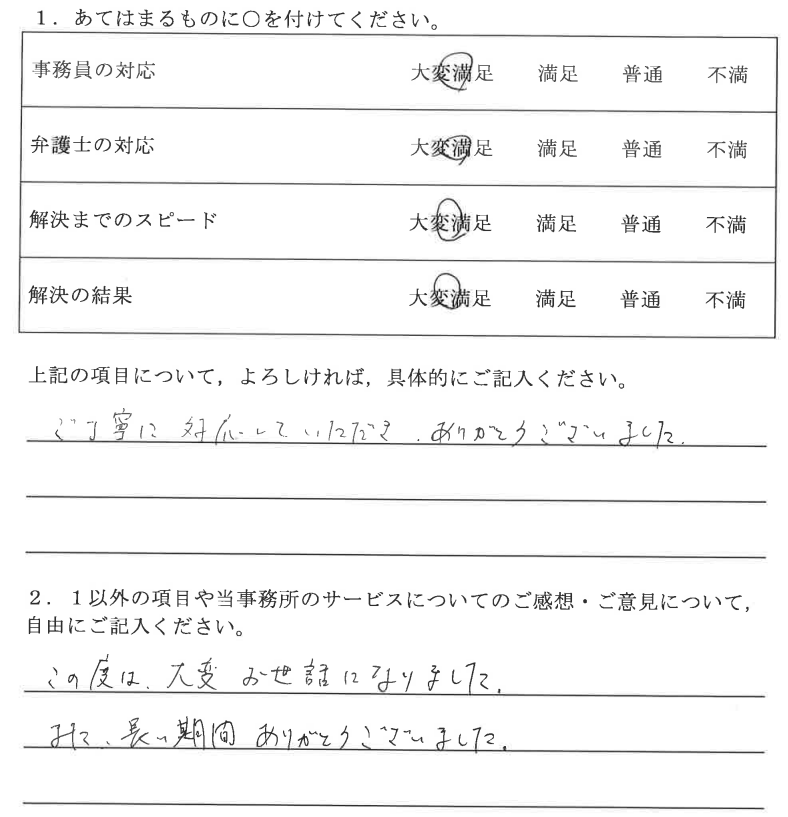 1．あてはまるものに○を付けてください。
事務員の対応 大変満足 満足 普通 不満
弁護士の対応 大変満足 満足 普通 不満
解決までのスピード 大変満足 満足 普通 不満
解決の結果 大変満足 満足 普通 不満
上記の項目について，よろしければ，具体的にご記入ください。
ご丁寧に対応していただき、ありがとうございました。
2．1以外の項目や当事務所のサービスについてのご感想・ご意見について，
自由にご記入ください。
この度は、大変お世話になりました。
また、長い期間ありがとうございました。